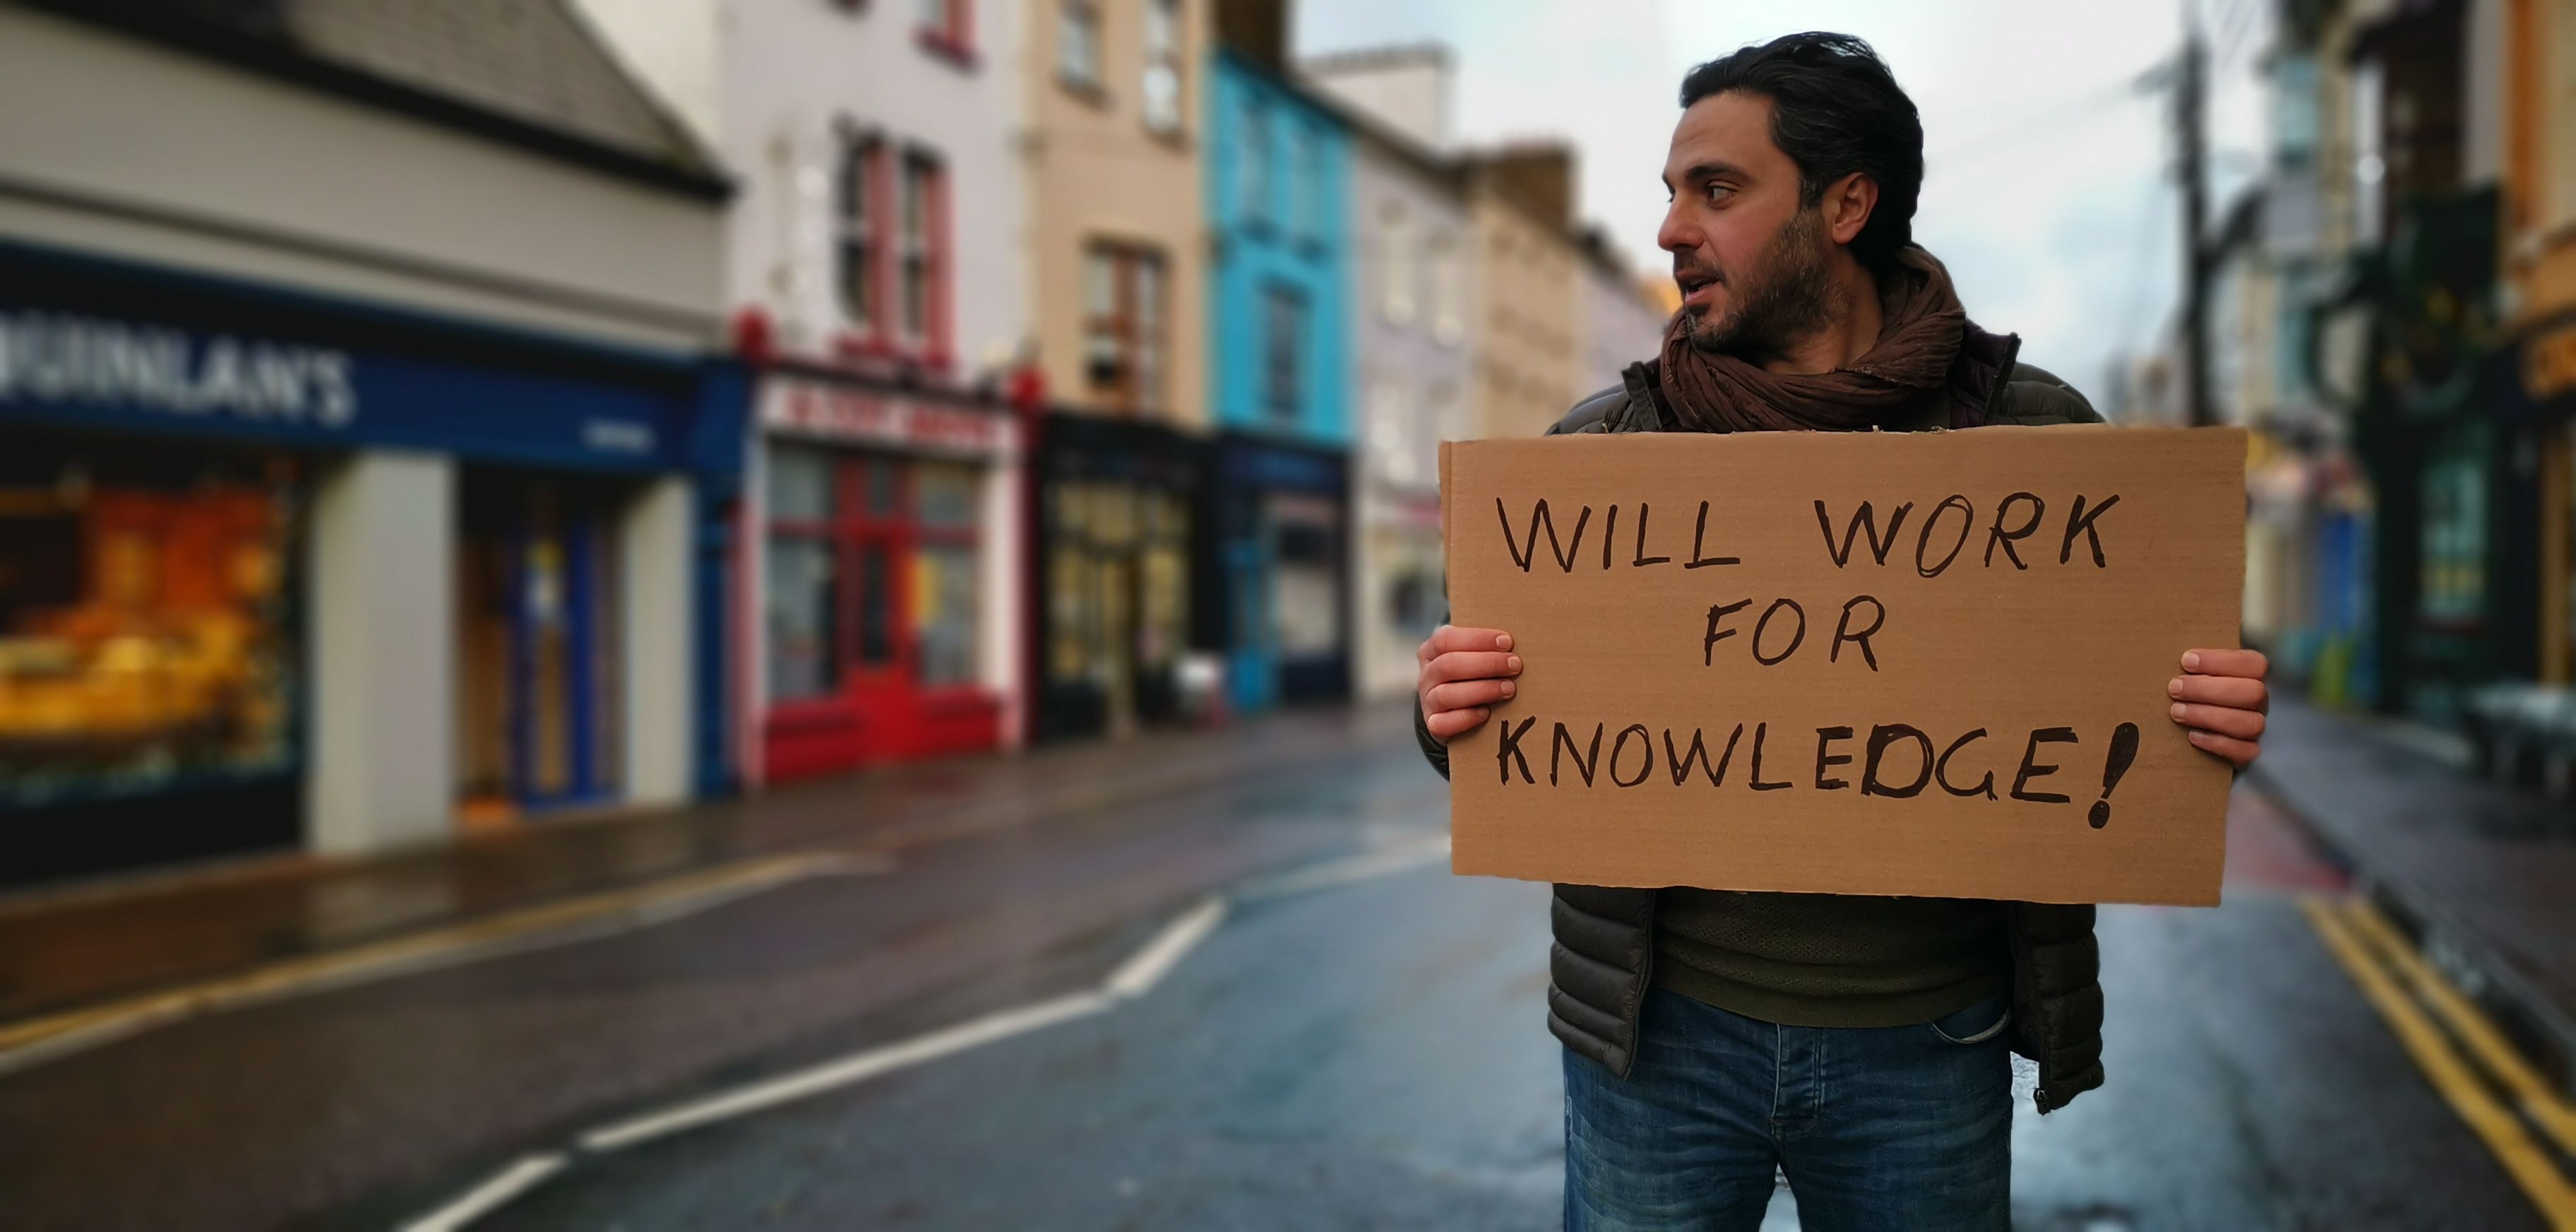 QUINLAN'S
WILL WORK
FOR
KNOWLEDGE!